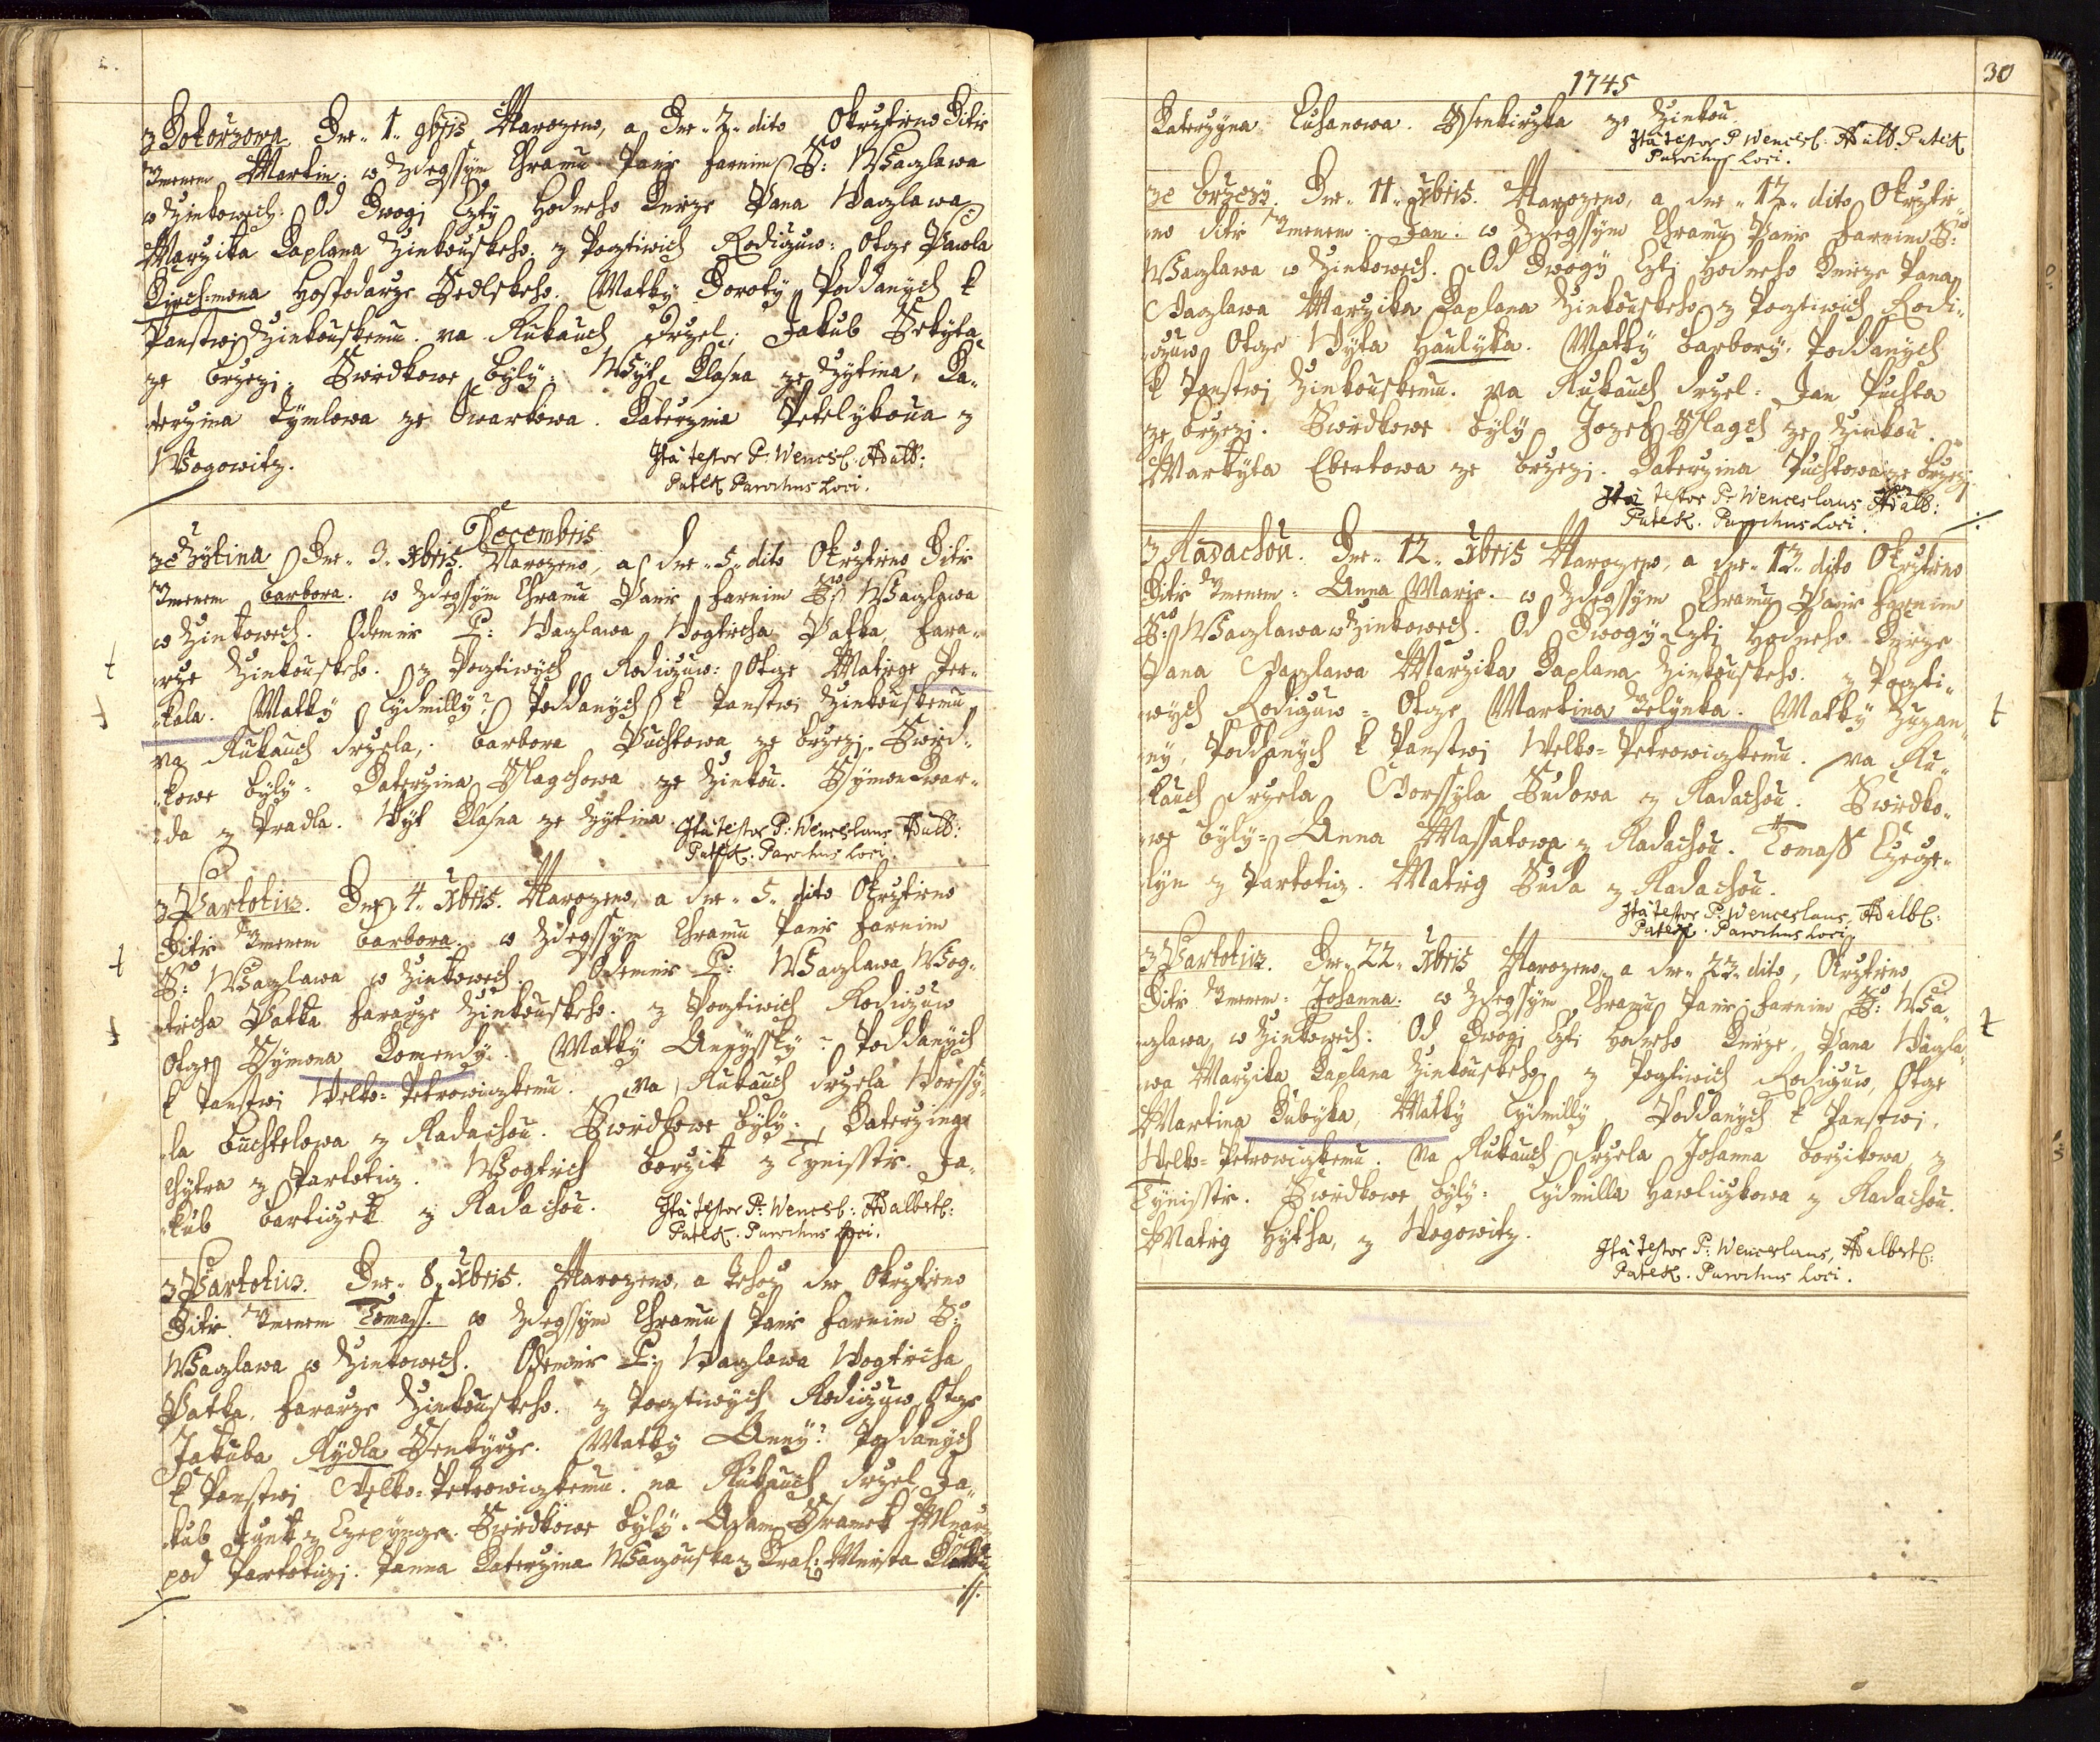 z Bokorzowa. Dne 1. 9bris Narozeno, a Dne 2. dito Okrzſtěno Ditě
Imenem Martin. w Zdegſſym Chramu Panie Farnim S: Waczlawa
w Zinkowech. Od Dwogi Czti Hodneho Knieze Pana Waczlawa
Marzika Kaplana Zinkouskeho. z Pocztiwich Rodiczuw: Otcze Pawla
Hospodarze Sedlskeho. Matky Doroty Poddanych k
Panstwj Zinkouskemu. na Rukauch Drzel: Jakub Sekyta
ze Brzezj. Swiedkowe byly: Wyt Klasna ze Zytina, Ka-
terzina Tymlowa ze Owarkowa. Katerzina Petelykoua z
Wogowitz.
Ita testor P. Wencsl. Adalb:
Patek Parochus Loci.
Decembris
ze Zytina Dne 3. Xbris. Narozeno, a dne 5. dito Okrztieno Ditě
Imenem barbora. w Zdegſſym Chramu Panie Farnim S: Waczlawa
w Zinkowech. Odemne P: Waczlawa Wogtiecha Patka, Fara-
rze Zinkouskeho. z Pocztiwych Rodiczuw: Otcze Matiege Pe-
kala. Matky Lydmilly: Poddanych k Panstwi Zinkouskemu
na Rukauch drzela, barbora Puchtowa ze brzezj. Swied-
kowe byly: Katerzina Sslagchowa ze Zinkou. Ssymon Kwar-
da z Pradla. Wyt Klasna ze Zytina.
Ita testor P: Wenceslaus Adalb:
Patek. Parochus Loci.
z Partotiz. Dne 4. Xbris. Narozeno, a dne 5. dito Okrztieno
Ditie Imenem barbora. w Zdegſſym Chramu Panie Farnim
S: Waczlawa w Zinkowech. Odemne P: Waczlawa Wog-
tiecha Patka Fararze Zinkouskeho. z Pocztiwich Rodiczuw
Otcze Ssymona Komendy. Matky Poddanych
k Panstwi Welko-Petrowiczkemu. Na Rukauch drzela Worssy-
la buchtelowa z Radachou. Swiedkowe byly: Katerzina
Chytra z Partotiz. Wogtiech borzik z Tynisstie. Ja-
kub bartizek z Radachou.
Ita testor P: Wencesl: Adalbert:
Patek. Parochus Loci.
z Partotiz. Dne 8. Xbris. Narozeno, a tehoz dne Okrztieno
Ditie Imenem Tomass. w Zdegſſym Chramu Panie Farnim S:
Waczlawa w Zinkowech. Odemne P: Waczlawa Wogtiecha
Patka, Fararze Zinkouskeho. z Pocztiwych Rodiczuw, Otcze
Jakuba Rydla Ssenkyrze. Matky Anny: Poddanych
k Panstwj Welko-Petrowiczkemu. na Rukauch drzel, Ja-
kub Swiedkowe byly. Adam Sramek Mlnarz
pod Partoticzj. Panna Katerzina z Kral: Miesta
1745
30
Katerzyna Lukanowa. Ssenkirzka ze Zinkou
Ita testor P. Wencesl. Adalb. Patek
Parochus Loci.
ze brzezy. Dne 11. Xbris. Narozeno, a dne 12. dito Okrztie-
no ditie Imenem: Jan. w Zdegſſym Chramu Panie Farnim S:
Waczlawa w Zinkowech. Od Dwogy Czti Hodneho Knieze Pana
Waczlawa Marzika Kaplana Zinkouskeho z Pocztiwich Rodi-
czuw Otcze Wyta Haulyka. Matky barbory, Poddanych
k Panstwj Zinkouskemu. na Rukauch drzel: Jan Puchta
ze brzezj. Swiedkowe byly Jozef Sslagch ze Zinkou.
Markyta Ebertowa ze brzezj. Katerzina Puchtowa ze brzezj
Ita testor P. Wenceslaus Adalb:
Patek. Parochus Loci.
z Radachou. Dne 12. Xbris Narozeno, a dne 13. dito Okrztieno
Ditie Imenem: Anna Marie. w Zdegſſym Chramu Panie Farnim
S: Waczlawa w Zinkowech. Od Dwogy Czti Hodneho Knieze
Pana Waczlawa Marzika Kaplana Zinkouskeho. z Poczti-
wych Rodiczuw: Otcze Martina Matky Zuzan-
ny, Poddanych k Panstwj Welko-Petrowiczkemu. na Ru-
kauch drzela Worssyla Sudowa z Radachou. Swiedko-
we byly: Anna Massatowa z Radachou. Tomass
z Partotiz. Matieg Suda z Radachou.
Ita testor P: Wenceslaus Adalb:
Patek. Parochus Loci.
z Partotiz. Dne 22. Xbris Narozeno a dne 23. dito, Okrztieno
Ditie Imenem: Johanna. w Zdegſſym Chramu Panie Farnim S: Wa-
czlawa w Zinkowech. Od Dwogi Czti Hodneho Knieze, Pana Waczla-
wa Marzika Kaplana Zinkouskeho z Pocztiwich Rodiczuw, Otcze
Martina Kubyka, Matky Lydmilly Poddanych k Panstwi,
Welko-Petrowiczkemu. Na Rukauch drzela Johanna borzikowa z
Tynisstie. Swiedkowe byly: Lydmilla Hawliczkowa z Radachou.
Matieg Hyksa, z Wogowitz.
Ita testor P: Wenceslaus, Adalbert:
Patek. Parochus Loci.